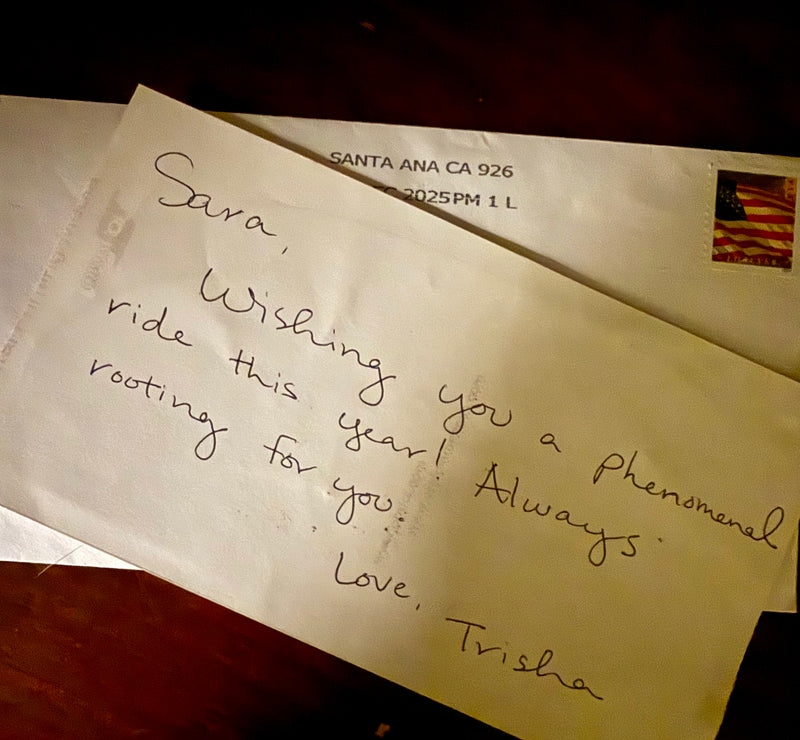 SANTA ANA CA 926
2025 PM 1 L
Sara,
Wishing you a phenomenal
ride this year! Always
rooting for you.
Love,
Trisha